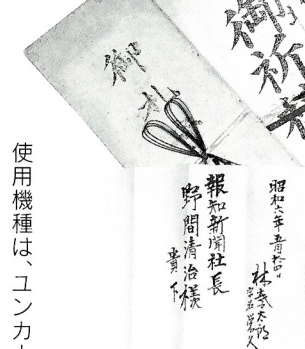 御祈
御札
昭和六年五月十四日
林喜太郎
報知新聞社長
野間清治様
貴下
使用機種は、ユンカ